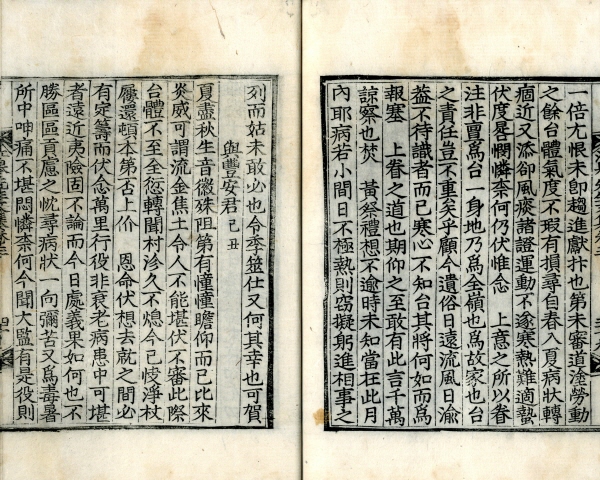 一倍尤恨未卽趨進獻抃也第未審道塗勞動
之餘台體氣度不瑕有損尋自春入夏病狀轉
痼近又添卻風痰諸證運動不遂寒熱難適蟄
伏度晷憫憐奈何仍伏惟念 上意之所以眷
注非亶爲台一身地乃爲全嶺也爲故家也台
之責任豈不重矣乎顧今遺俗日遠流風日渝
益不待識者而已寒心不知台其將何如而爲
報塞 上眷之道也期仰之至敢有此言千萬
諒察也焚 黃祭禮想不逾時未知當在此月
內耶病若小間日不極熱則竊擬躬進相事之
列而姑未敢必也令季筮仕又何其幸也可賀
與豊安君 己丑
夏盡秋生音徽殊阻第有憧憧瞻仰而已比來
炎威可謂流金焦土令人不能堪伏不審此際
台體不至全愆轉聞村沴久不熄今已悛淨杖
屨還頓本第否上价 恩命伏想去就之間必
有定籌而伏念萬里行役非衰老病患中可堪
者遠近夷險固不論而今日處義果如何也不
勝區區貢慮之忱尋病狀一向彌苦又爲毒暑
所中呻痛不堪悶憐奈何今聞大監有是役則